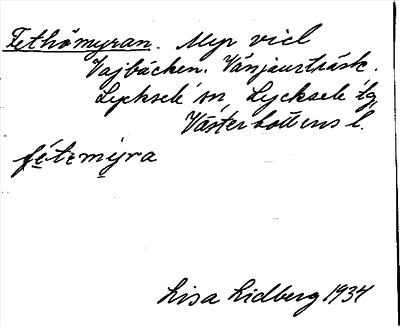 Fethömyran. Myr vid
Vajbäcken. Vänjaurträsk.
Lycksele sn, Lycksele tg,
Västerbottens l.
fetemýra
Lisa Lidberg 1934